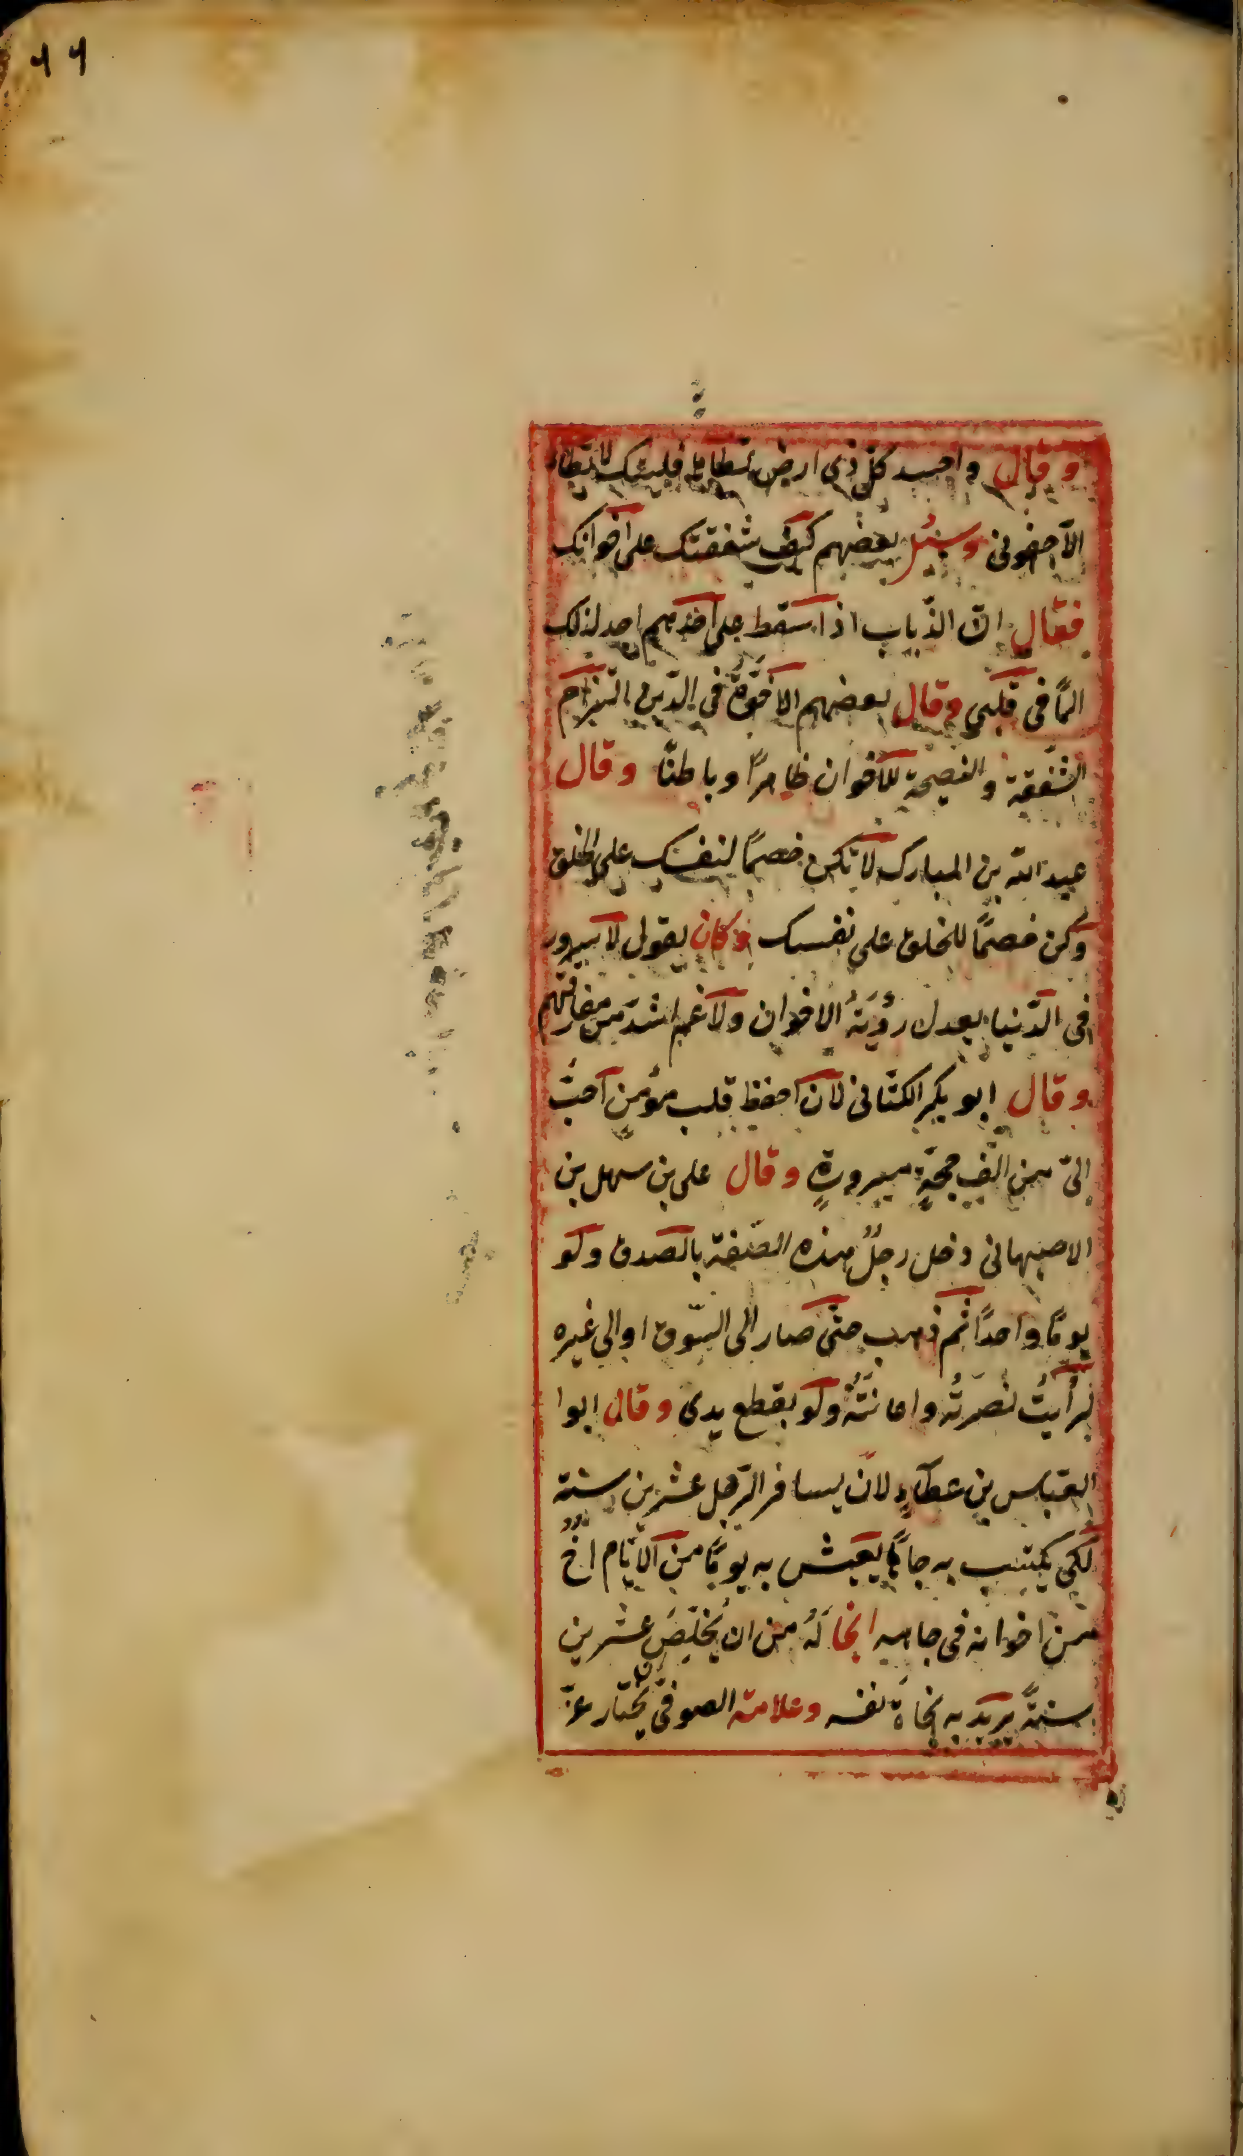 ٦٦
وقال واحسد كل ذى ارض تطاها فليتك لا تطاء
الا جفونى وسئل بعضهم كيف شفقتك على اخوانك
فقال ان الذّباب اذا سقط على احدهم اجد لذلك
المًا فى قلبى وقال بعضهم الاخوّة فى الدّين التزام
الشّفقة والنصيحة للاخوان ظاهرًا وباطنًا وقال
عبد الله بن المبارك لا تكن خصمًا لنفسك على الخلق
وكن خصمًا للخلق على نفسك وكان يقول لا سرور
فى الدّنيا يعدل رؤيةُ الاخوان ولا غم اشد من مفارقتهم
وقال ابو بكر الكتّانى لان احفظ قلب مؤمن احبُّ
الىّ من الف حجّةٍ مبرورةٍ وقال على بن سهل بن
الاصبهانى دخل رجلٌ هذه الصّفة بالصدق ولو
يومًا واحدًا ثم ذهب حتّى صار الى السّوق او الى غيره
لرأيتُ نصرتُه واعانتُهُ ولو بقطع يدى وقال ابوا
العبّاس بن عطآءٍ لان يسافر الرّجل عشرين سنة
لكى يكتسب به جاهًا يعيش به يومًا من الايّام اخٌ
من اخوانه فى جاهه انجا لهُ من ان يُخلّصَ عشرين
سنةً يريد به نجاةَ نفسه وعلامة الصوفىّ يختار عزّ